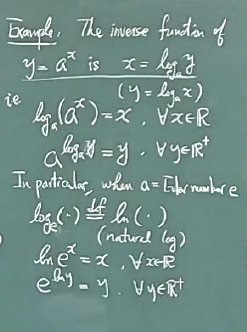 Example: The inverse function of
y = a^x is x = log_a y
(y = log_a x)
ie
log_a(a^x) = x, ∀x∈ℝ
a^{log_a y} = y, ∀y∈ℝ⁺
In particular, when a = Euler number e
log_e(·) ≝ ln(·)
(natural log)
ln e^x = x, ∀x∈ℝ
e^{ln y} = y, ∀y∈ℝ⁺